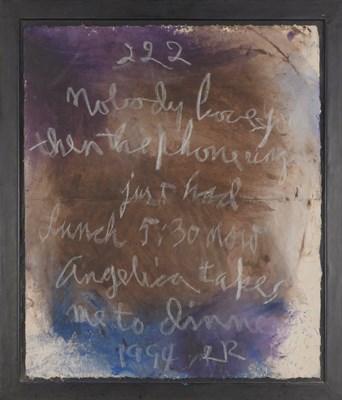 222
Nobody loves yo
then the phone rings
just had
lunch 5:30 now
Angelica takes
me to dinner
1994 RR